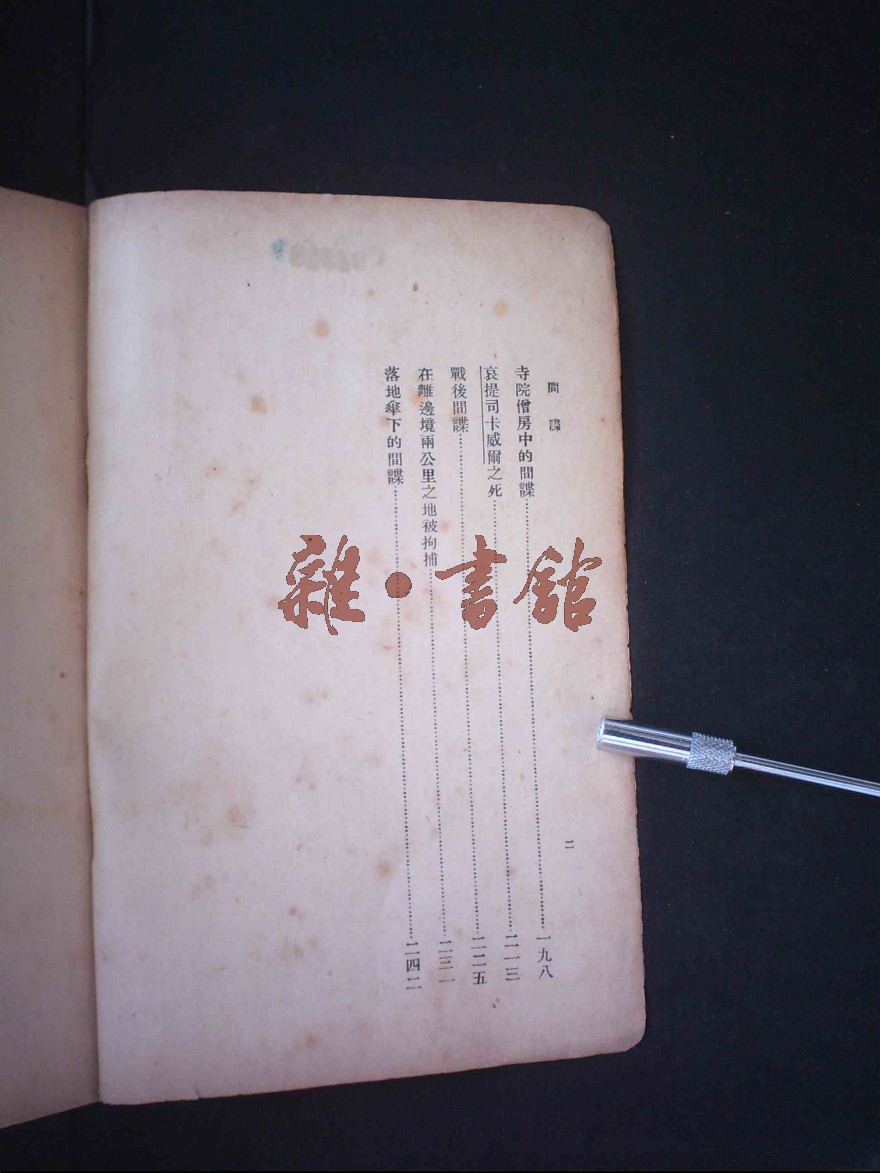 間諜
寺院僧房中的間諜……一九八
哀提司卡威爾之死……二一三
戰後間諜……二二五
在離邊境兩公里之地被拘捕……二三一
落地傘下的間諜……二四二
二
雜·書館